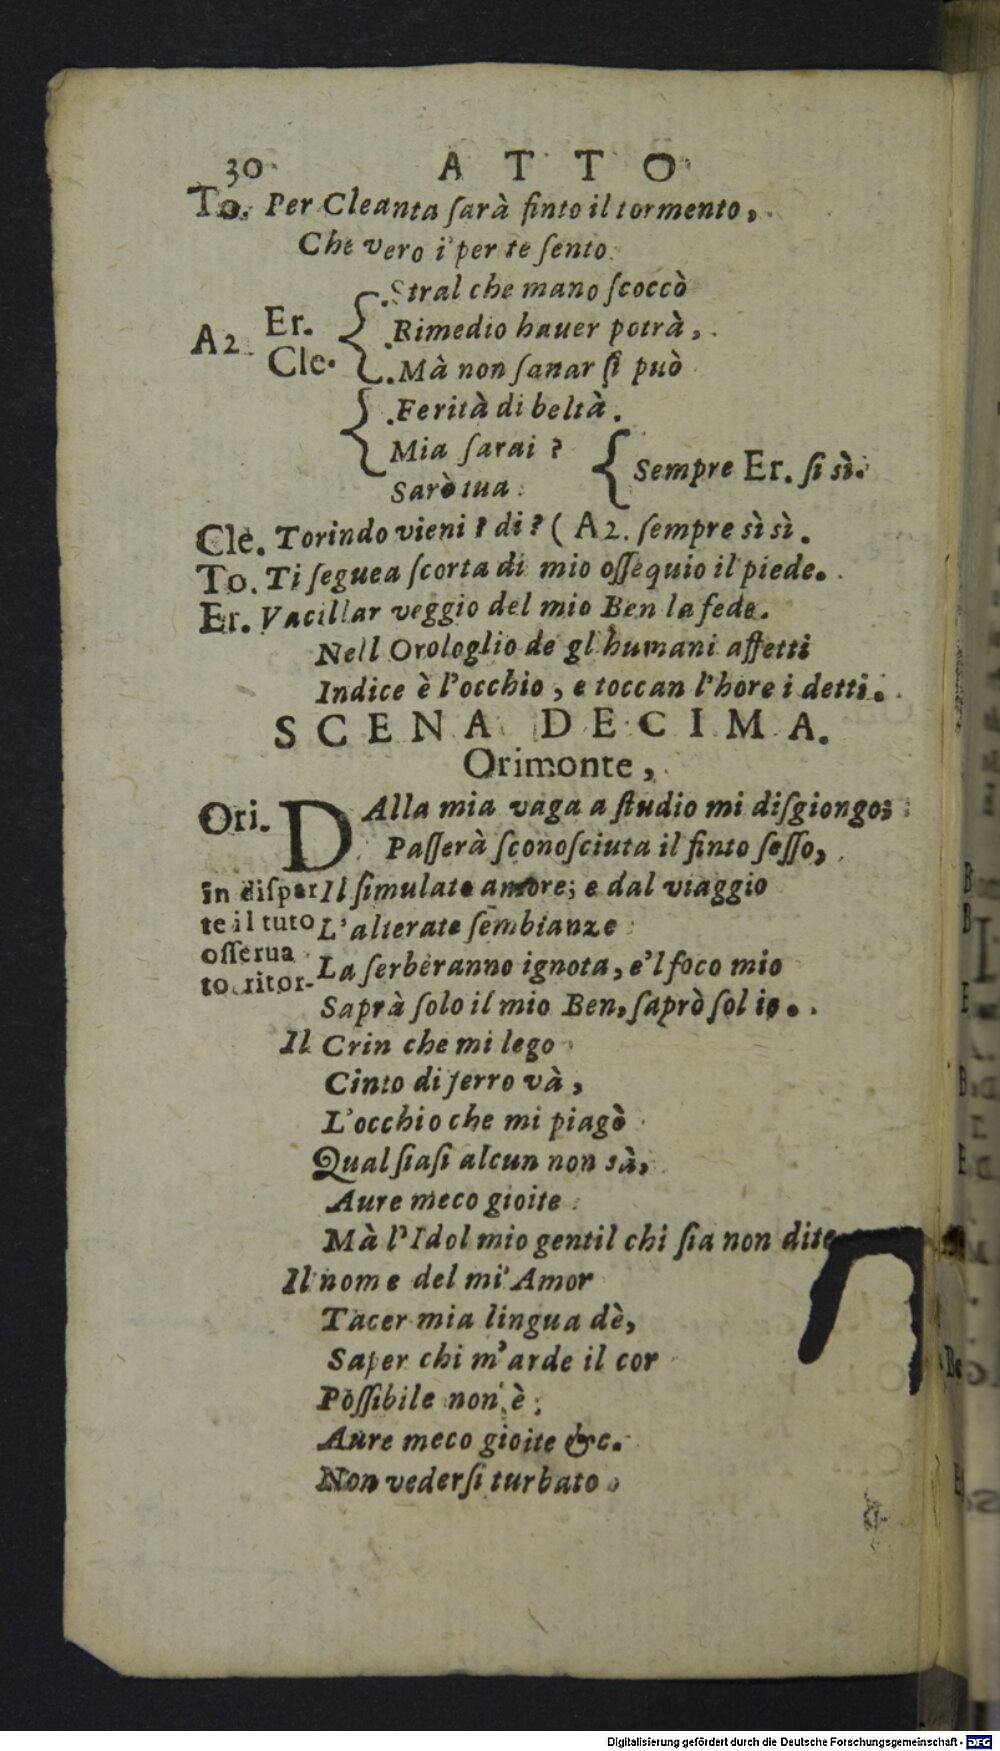 30 ATTO
To. Per Cleanta ſarà finto il tormento,
Che vero i' per te ſento
Stral che mano ſcoccò
A2. Er. Rimedio hauer potrà,
Cle. Mà non ſanar ſi può
Ferità di beltà.
Mia ſarai ?
Sempre Er. ſi sì.
Sarò tua
Cle. Torindo vieni ? di ? ( A2. ſempre sì sì.
To. Ti ſeguea ſcorta di mio oſſequio il piede.
Er. Vacillar veggio del mio Ben la fede.
Nell Orologlio de gl'humani affetti
Indice è l'occhio, e toccan l'hore i detti.
SCENA DECIMA.
Orimonte,
Ori. DAlla mia vaga a ſtudio mi diſgiongo;
Paſſerà ſconoſciuta il finto ſeſſo,
in diſpar Il ſimulate amore; e dal viaggio
te il tuto L'alterate ſembianze
oſſerua
La ſerberanno ignota, e'l foco mio
to. ritor-
Saprà ſolo il mio Ben, ſaprò ſol io.
Il Crin che mi lego
Cinto di ferro và,
L'occhio che mi piagò
Qual ſiaſi alcun non sà,
Aure meco gioite
Mà l'Idol mio gentil chi ſia non dite
Il nome del mi' Amor
Tacer mia lingua dè,
Saper chi m'arde il cor
Poſſibile non è;
Aure meco gioite &c.
Non vederſi turbato
Digitalisierung gefördert durch die Deutsche Forschungsgemeinschaft - DFG